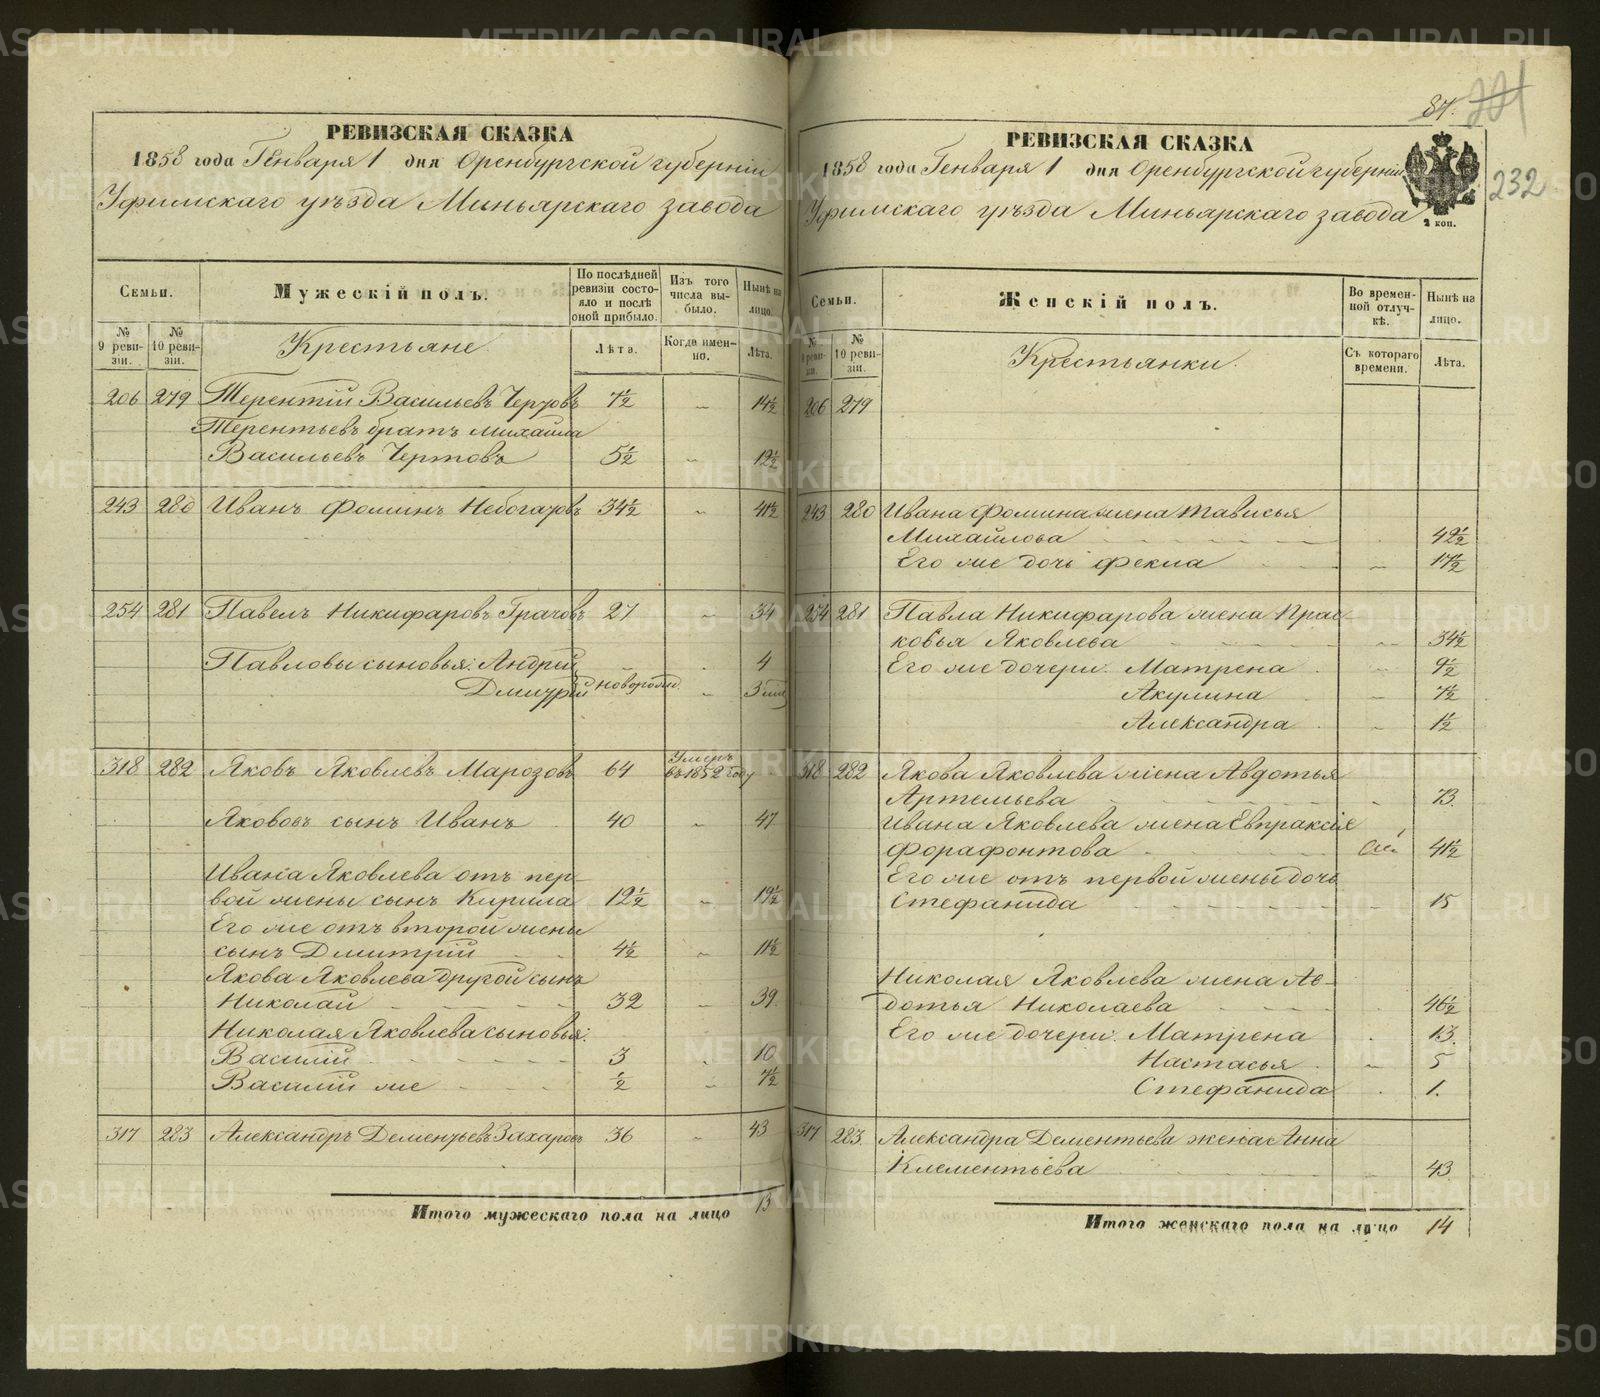 РЕВИЗСКАЯ СКАЗКА
1858 года Генваря 1 дня Оренбургской губернии
Уфимскаго уѣзда Миньярскаго завода
Семьи.
Мужескій полъ.
По послѣдней ревизіи состояло и послѣ оной прибыло.
Изъ того числа выбыло.
Нынѣ на лицо.
№ 9 ревизіи.
№ 10 ревизіи.
Крестьяне
Лѣта.
Когда именно.
Лѣта.
206 279 Терентій Васильевъ Чертовъ 7½ „ 14½
Терентьевъ братъ Михайла
Васильевъ Чертовъ 5½ „ 12½
243 280 Иванъ Фоминъ Небогатовъ 34½ „ 41½
254 281 Павелъ Никифаровъ Грачовъ 27 „ 34
Павловы сыновья: Андрей „ 4
Дмитрій новорожд. „ 3
318 282 Яковъ Яковлевъ Марозовъ 64 Умеръ въ 1852 году
Яковъ сынъ Иванъ 40 „ 47
Ивана Яковлева отъ пер-
вой жены сынъ Кирила 12½ „ 19½
Его же отъ второй жены
сынъ Дмитрій 4½ „ 11½
Якова Яковлева другой сынъ
Николай 32 „ 39
Николая Яковлева сыновья:
Василій 3 „ 10
Василій же ½ „ 7½
317 283 Александръ Дементьевъ Захаровъ 36 „ 43
Итого мужескаго пола на лицо 13
84. 221
232
РЕВИЗСКАЯ СКАЗКА
1858 года Генваря 1 дня Оренбургской губерніи
Уфимскаго уѣзда Миньярскаго завода
2 коп.
Семьи.
Женскій полъ.
Во временной отлучкѣ.
Нынѣ на лицо.
№ 9 ревизіи.
№ 10 ревизіи.
Крестьянки.
Съ котораго времени.
Лѣта.
206 279
243 280 Ивана Фомина жена Тависья
Михайлова 42½
Его же дочь Фекла „ 17½
254 281 Павла Никифарова жена Прас-
ковья Яковлева „ 34½
Его же дочери: Матрена „ 9½
Акулина „ 7½
Александра „ 1½
318 282 Якова Яковлева жена Авдотья
Артемьева „ 73.
Ивана Яковлева жена Евпраксія
Форафонтова 41½
Его же отъ первой жены дочь
Стефанида „ 15
Николая Яковлева жена Ав-
дотья Николаева 46½
Его же дочери: Матрена 13.
Настасья „ 5
Стефанида 1.
317 283. Александра Дементьева жена Анна
Клементьева 43
Итого женскаго пола на лицо 14
METRIKI.GASO-URAL.RU